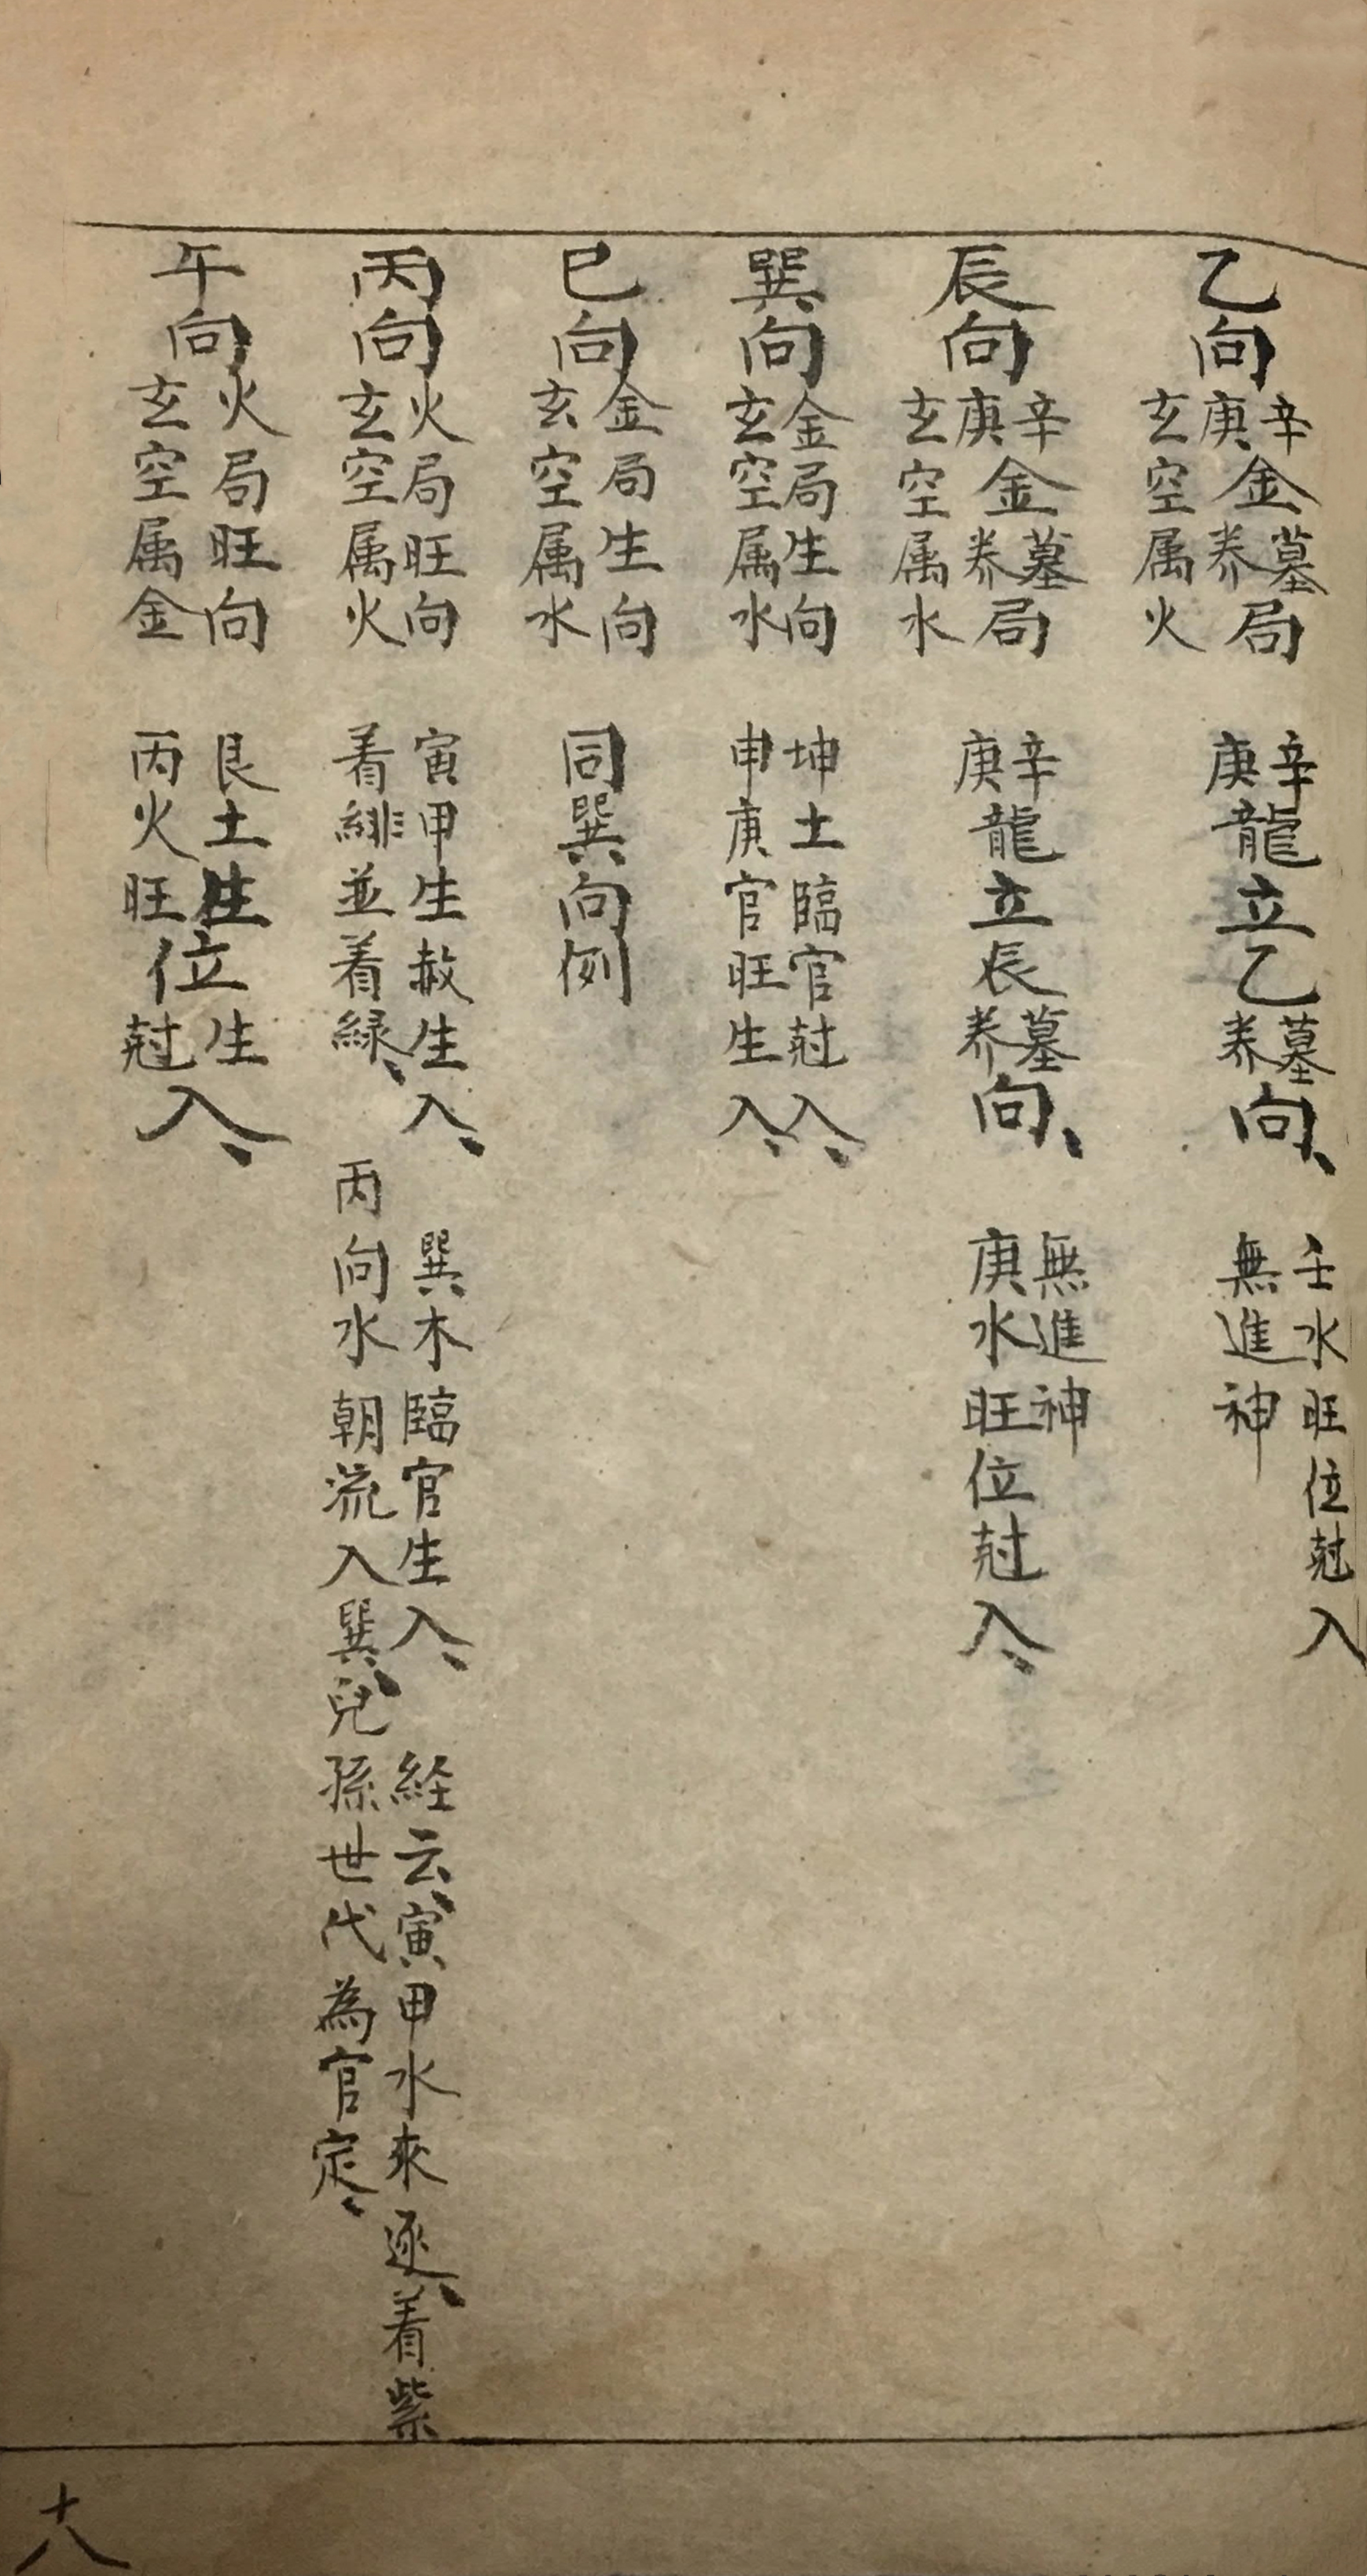 乙向
辛庚金墓养局
玄空属火
辛庚龍立乙墓养向、
壬水旺位尅入
無進神
辰向
辛庚金墓养局
玄空属水
辛庚龍立辰墓养向、
無進神
庚水旺位尅入、
巽向
金局生向
玄空属水
坤土臨官尅入、
申庚官旺生入、
巳向
金局生向
玄空属水
同巽向例
丙向
火局旺向
玄空属火
寅甲生赦生入、巽木臨官生入、経云、寅甲水來逐、着紫
着緋並着緑、丙向水朝流入巽、兒孫世代為官定、
午向
火局旺向
玄空属金
艮土生丙火旺位生尅入、
十八